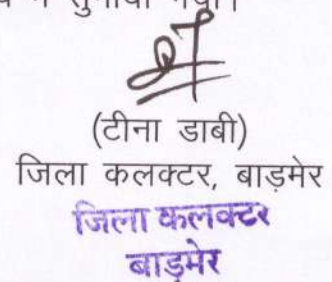 में सुनाया गया।
(टीना डाबी)
जिला कलक्टर, बाड़मेर
जिला कलक्टर
बाड़मेर